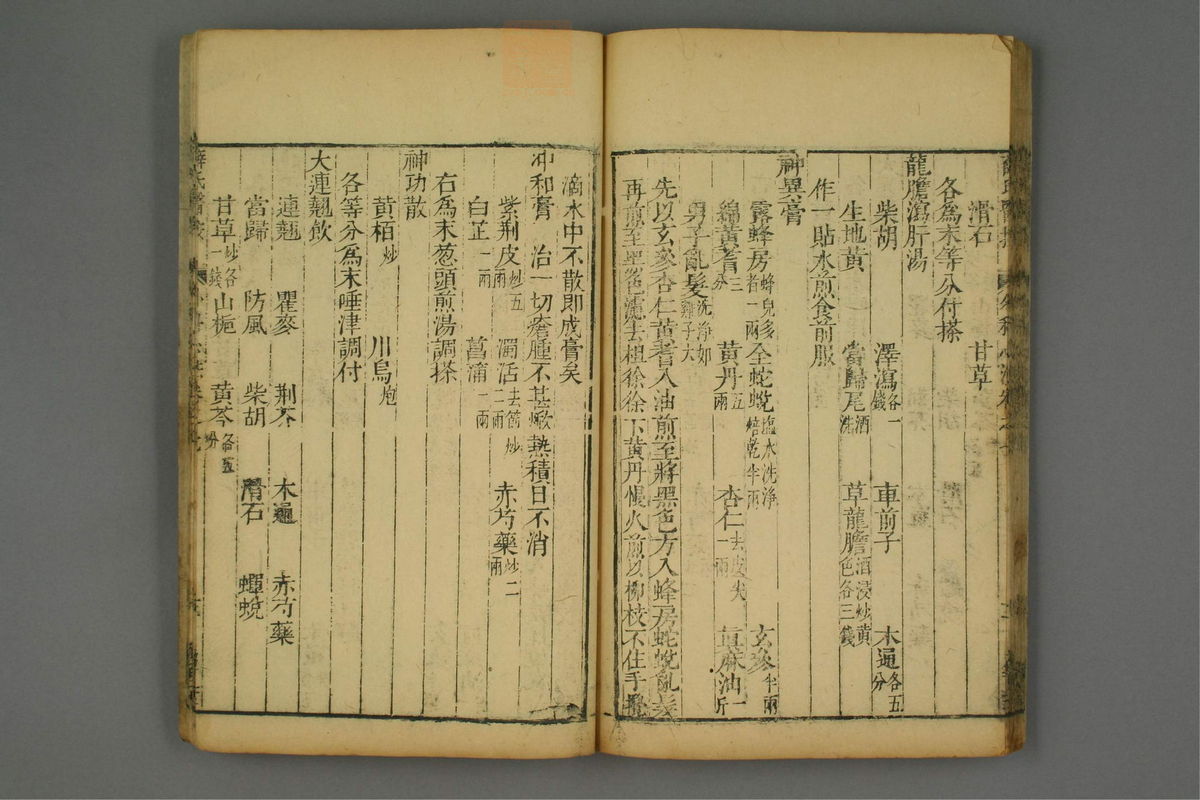 滑石 甘草
各為末等分付搽
龍膽瀉肝湯
柴胡 澤瀉各一錢 車前子 木通各五分
生地黃 當歸尾酒洗 草龍膽酒浸炒黃色各三錢
作一貼水煎食前服
神異膏
露蜂房蜂兒多者一兩 全蛇蛻鹽水洗淨焙乾半兩 玄參半兩
綿黃耆三分 黃丹五兩 杏仁去皮尖一兩 麻油一斤
男子亂髮洗淨如雞子大
先以玄參杏仁黃耆入油煎至將黑色方入蜂房蛇蛻亂髮
再煎至黑色濾去柤徐徐下黃丹慢火煎以柳枝不住手攪
滴水中不散即成膏矣
冲和膏 治一切瘡腫不甚㷔熱積日不消
紫荆皮炒五兩 獨活去節炒二兩 赤芍藥炒二兩
白芷一兩 菖蒲一兩
右為末葱頭煎湯調搽
神功散
黃栢炒 川烏炮
各等分為末唾津調付
大連翹飲
連翹 瞿麥 荆芥 木通 赤芍藥
當歸 防風 柴胡 滑石 蟬蛻
甘草炒各一錢 山梔 黃芩各五分
薛氏醫按